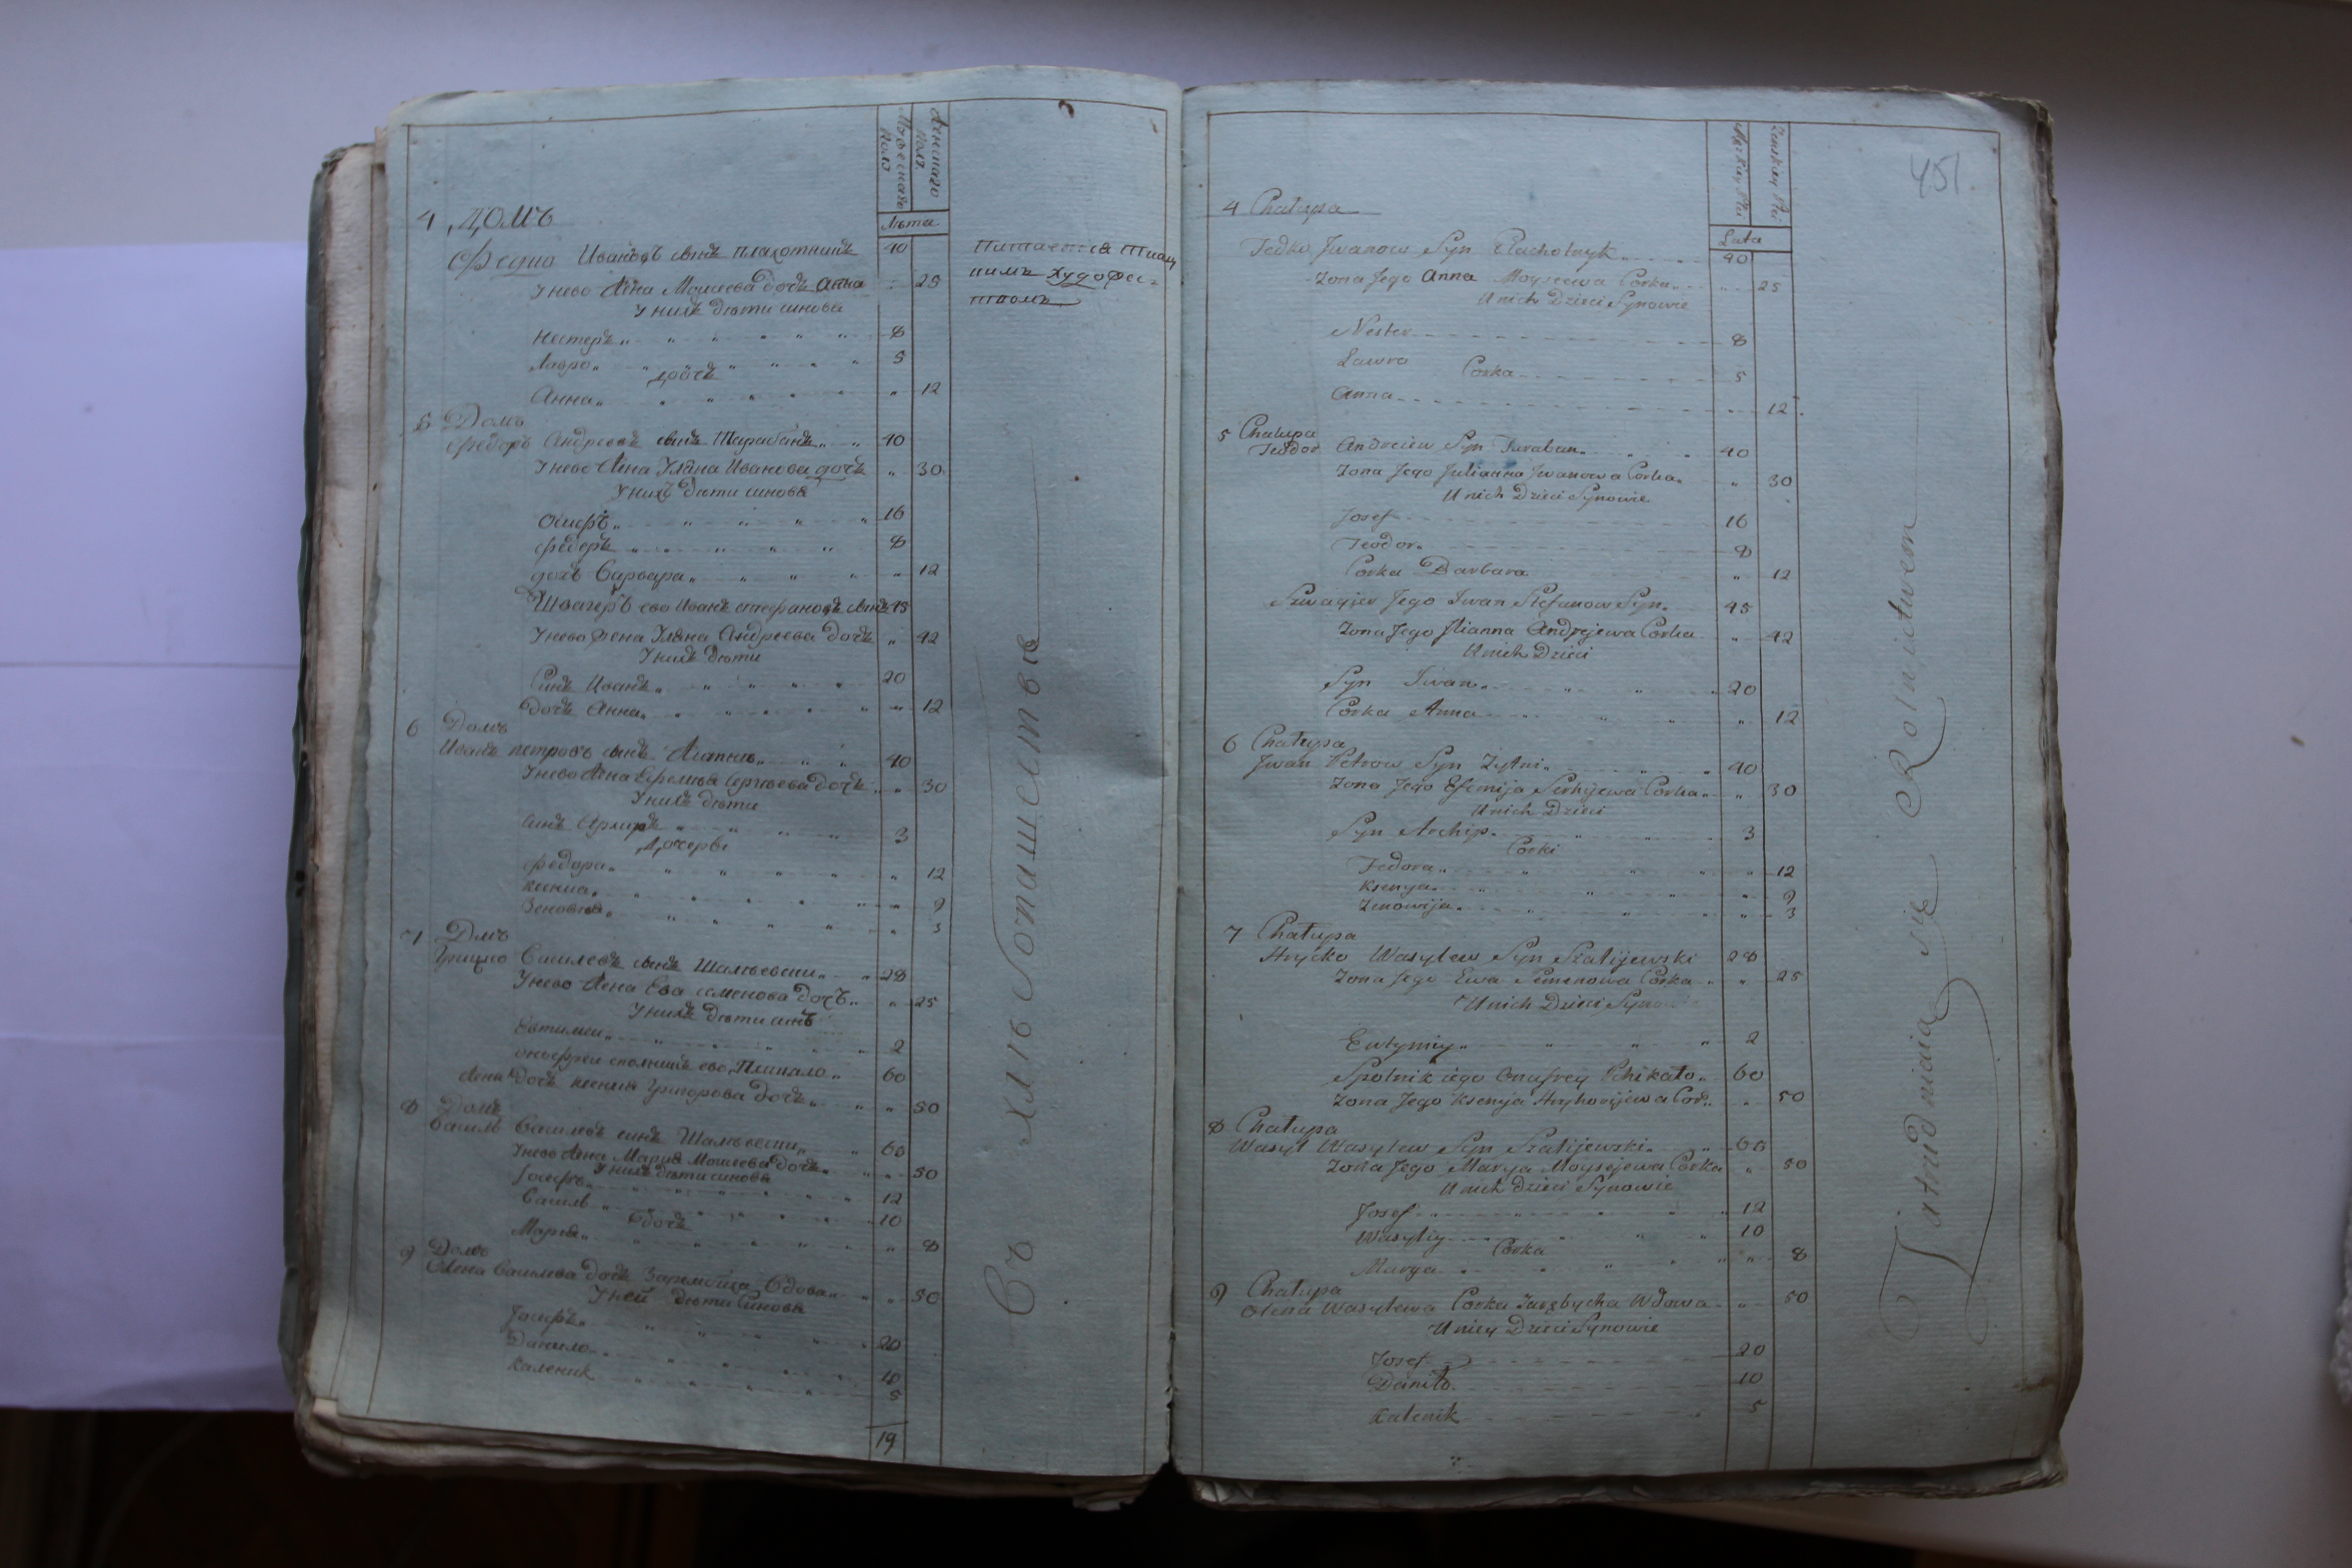 Мужескаго Полѣ
Женскаго Полѣ
Лѣта
4 Домъ
Федко Ивановъ синъ плахотникъ 40
питается ткац
кимъ художе-
ством
У нево Жена Мойсеева дочь Анна 25
У нихъ дѣти синова
Нестеръ 8
Лавро 5
Дочь
Анна 12
5 Домъ
Федоръ Андреевъ синъ Тарабанъ 40
У нево Жена Уляна Иванова дочь 30
У нихъ дѣти синова
Осифъ 16
Федеръ 8
дочь Варвара 12
Швагеръ ево Иванъ стефановъ синъ 45
У нево Жена Уляна Андреева дочь 42
У нихъ дѣти
Синъ Иванъ 20
дочь Анна 12
6 Домъ
Иванъ петровъ синъ 40
У нево Жена Ефемия Сергѣева дочь 30
У нихъ дѣти
синъ Архипъ 3
Дочерве
Федора 12
Ксения 9
Зеновия 3
7 Домъ
Грицко Василевъ синъ Шалѣевски 28
У нево Жена Ева семенова дочь 25
У нихъ дѣти синъ
Евтимии 2
Онофреи сполникъ ево 60
Жена дочь Ксения Григорова дочь 50
8 Домъ
Василь Василевъ синъ Шалѣевски 60
У нево Жена Мария Мойсеева дочь 50
У нихъ дѣти синова
Іосифъ 12
Василь 10
дочь
Мария 8
9 Домъ
Олена Василева дочь Зарембиха Вдова 50
У ней дѣти Синова
Іосифъ 20
Данило 10
Каленик 5
19
Въ хлѣбопашествѣ
451.
Męzkiey Płci
Zenskiey Płci
Lata
4 Chałupa
Fedko Jwanow Syn Płachotnyk 40
Zona Jego Anna Moysiewa Corka 25
U nich Dzieci Synowie
Nester 8
Ławro 5
Corka
Anna 12
5 Chałupa
Teodor Andreiew Syn Taraban 40
Zona Jego Julianna Jwanowa Corka 30
U nich Dzieci Synowie
Josef 16
Teodor 8
Corka Barbara 12
Szwagier Jego Iwan Stefanow Syn 45
Zona Jego Ilianna Andrejewa Corka 42
U nich Dzieci
Syn Iwan 20
Corka Anna 12
6 Chałupa
Jwan Petrow Syn Zytni 40
Zona Jego Efemija Serhijewa Corka 30
U nich Dzieci
Syn Archip 3
Corki
Fedora 12
Ksenya 9
Zenowija 3
7 Chałupa
Hrycko Wasylew Syn Szalijewski 28
Zona Jego Ewa Semenowa Corka 25
U nich Dzieci Synowie
Ewtymiy 2
Spolnik iego Onufrey Pchikało 60
Zona Jego Ksenija Hryhorijewa Cor. 50
8 Chałupa
Wasyl Wasylew Syn Szalijewski 60
Zona Jego Marya Moysejewa Corka 50
U nich Dzieci Synowie
Josef 12
Wasyliy 10
Corka
Marya 8
9 Chałupa
Olena Wasylewa Corka Zarębycha Wdowa 50
U niey Dzieci Synowie
Josef 20
Daniło 10
Kalenik 5
Zatrudniaią się Rolnictwem